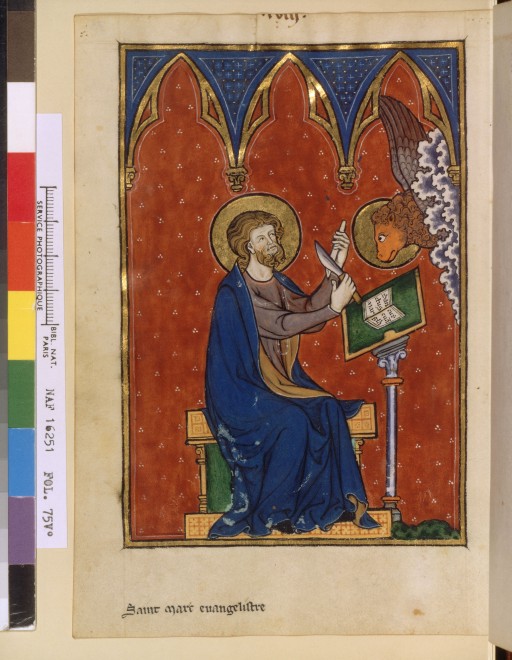 SERVICE PHOTOGRAPHIQUE
BIBL. NAT.
PARIS
NAF 16251 FOL. 75Vº
Saint marc evangelistre